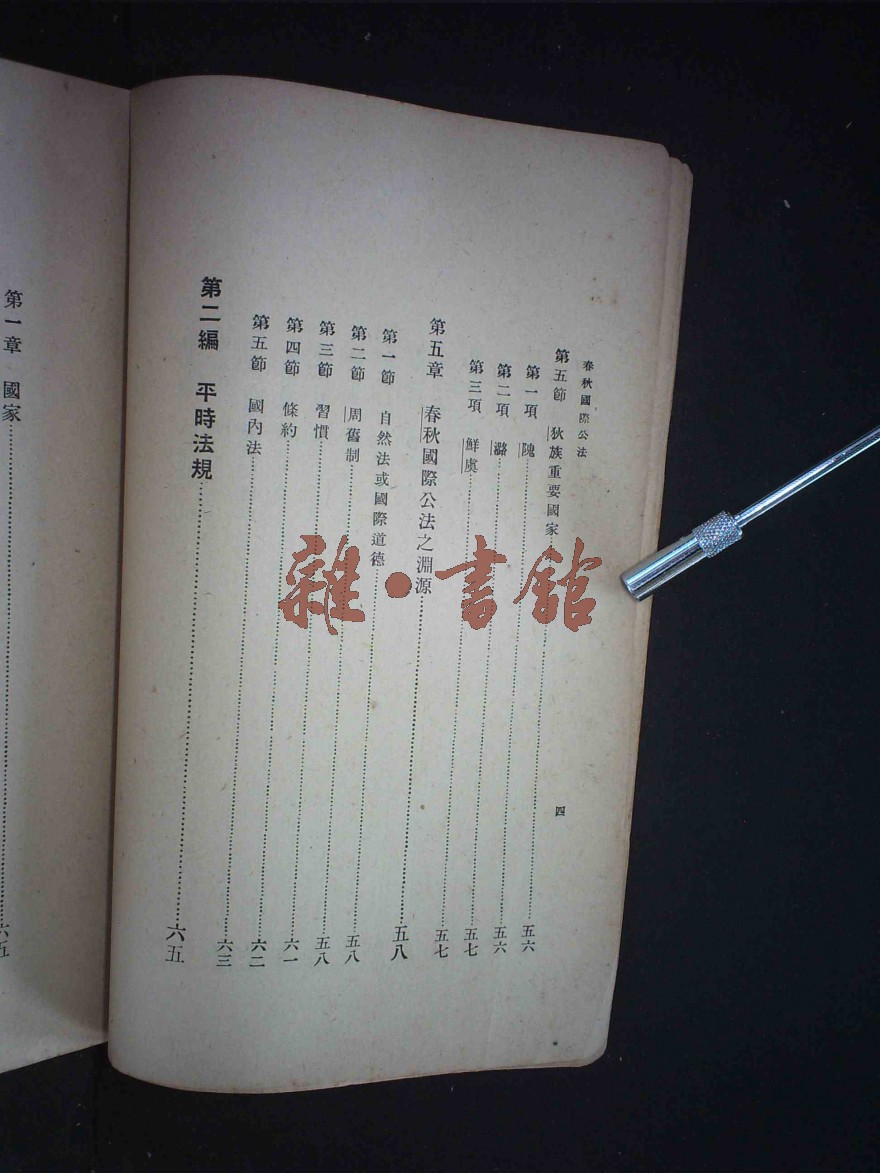 春秋國際公法
四
第五節 狄族重要國家……五六
第一項 隗……五六
第二項 潞……五七
第三項 鮮虞……五七
第五章 春秋國際公法之淵源……五八
第一節 自然法或國際道德……五八
第二節 周舊制……五八
第三節 習慣……六一
第四節 條約……六二
第五節 國內法……六三
第二編 平時法規……六五
第一章 國家……六五
雜·書館